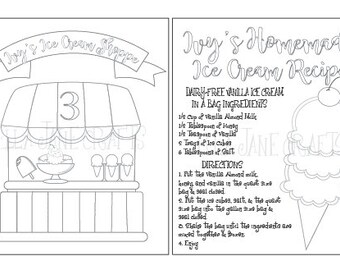 Ivy's Ice Cream Shoppe
3
Ivy's Homemade
Ice Cream Recipe
DAIRY-FREE VANILLA ICE CREAM
IN A BAG INGREDIENTS
1/2 Cup of Vanilla Almond Milk
1/2 Tablespoon of Honey
1/4 Teaspoon of Vanilla
3 Cups of Ice Cubes
6 Tablespoons of Salt
DIRECTIONS
1. Put the Vanilla Almond milk,
honey, and vanilla in the quart size
bag & seal closed.
2. Put the ice cubes, salt, & the quart
size bag into the gallon size bag &
seal closed
3. Shake the bag until the ingredients are
mixed together & frozen.
4. Enjoy